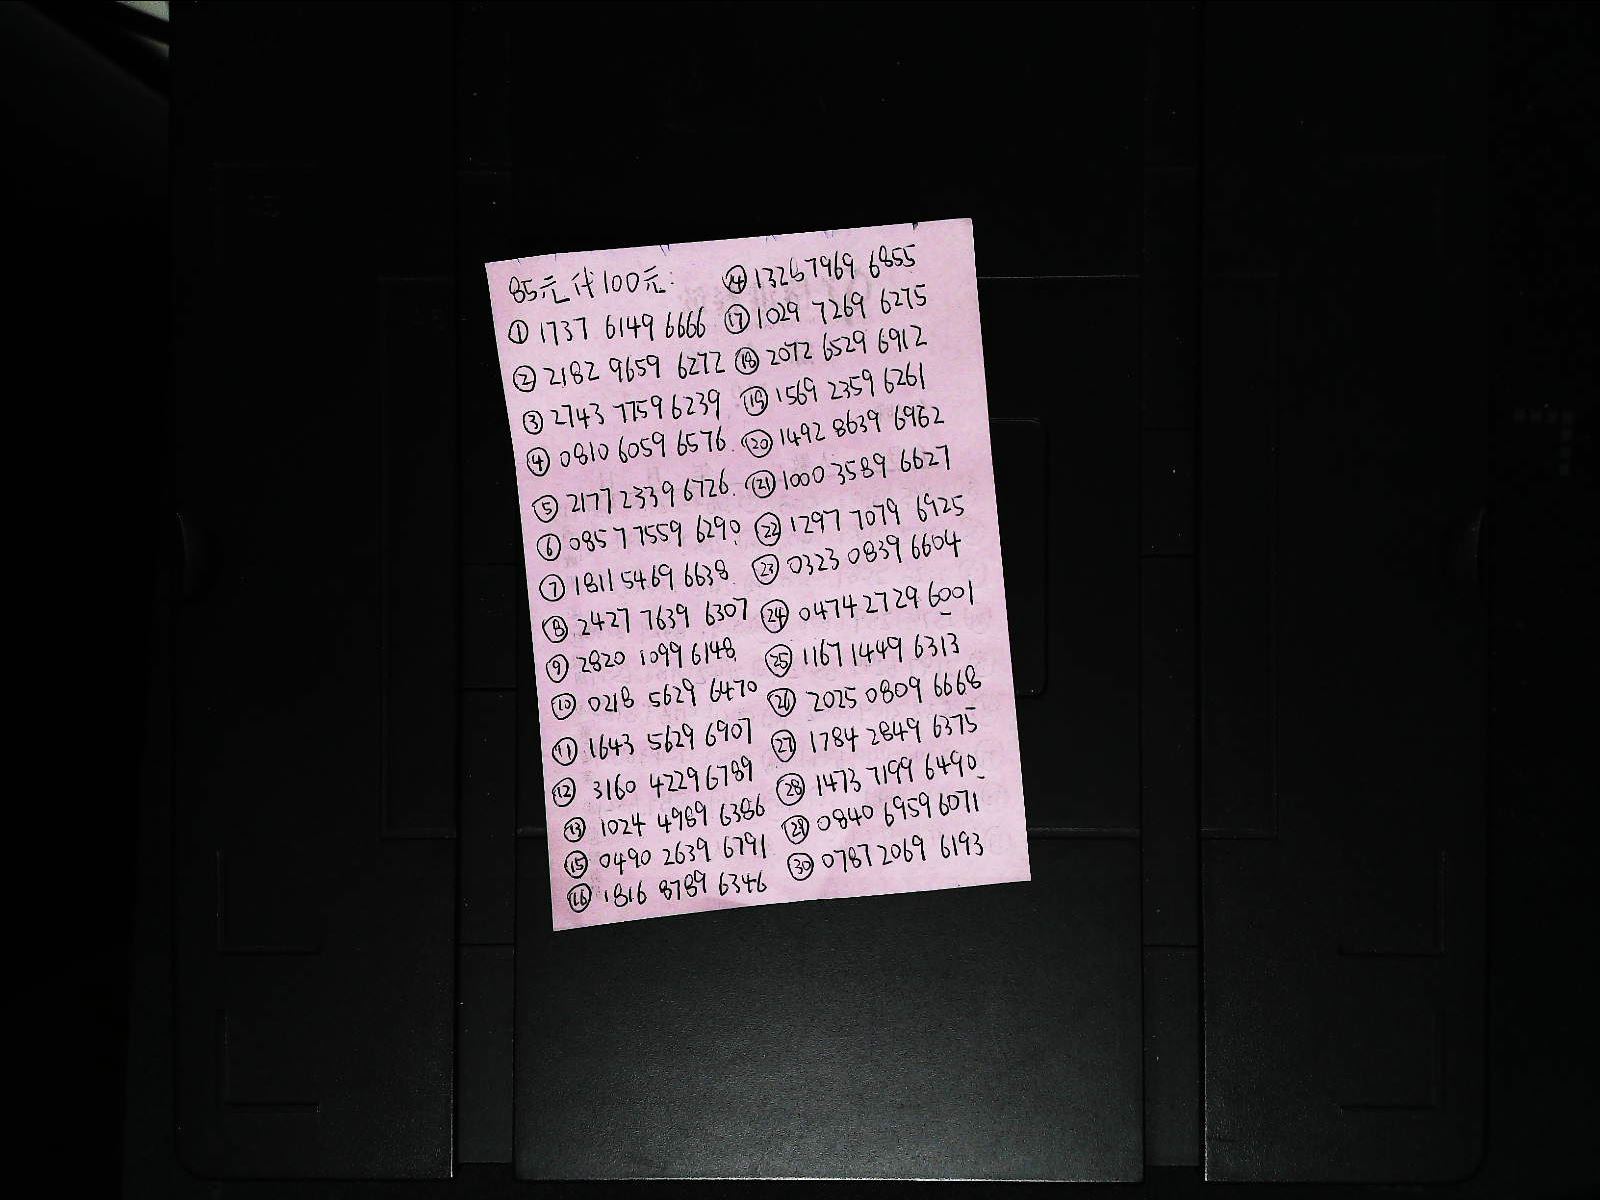 85元代100元:
① 1737 6149 6666
② 2182 9659 6272
③ 2743 7759 6239
④ 0810 6059 6576
⑤ 2177 2339 6726
⑥ 0857 7559 6290
⑦ 1811 5469 6638
⑧ 2427 7639 6307
⑨ 2820 1099 6148
⑩ 0218 5629 6470
⑪ 1643 5629 6907
⑫ 3160 4229 6789
⑬ 1024 4989 6386
⑮ 0490 2639 6791
⑯ 1816 8789 6346
⑭ 1326 7969 6855
⑰ 1029 7269 6275
⑱ 2072 6529 6912
⑲ 1569 2359 6261
⑳ 1492 8639 6962
㉑ 1000 3589 6627
㉒ 1297 7079 6925
㉓ 0323 0839 6604
㉔ 0474 2729 6001
㉕ 1167 1449 6313
㉖ 2025 0809 6668
㉗ 1784 2849 6375
㉘ 1473 7199 6490
㉙ 0840 6959 6071
㉚ 0787 2069 6193